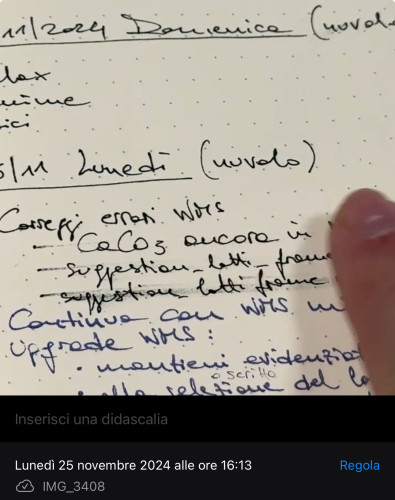 11/2024 Domenica (nuvolo
lax
ici
5/11 Lunedì (nuvolo)
Correggi errori WMS
- CaCO3 ancora in
- suggestion_lotti_frame
- suggestion lotti frame
Continua con WMS
Upgrade WMS:
• mantieni evidenziat
o scritto
selezione del lo
Inserisci una didascalia
Lunedì 25 novembre 2024 alle ore 16:13
Regola
IMG_3408